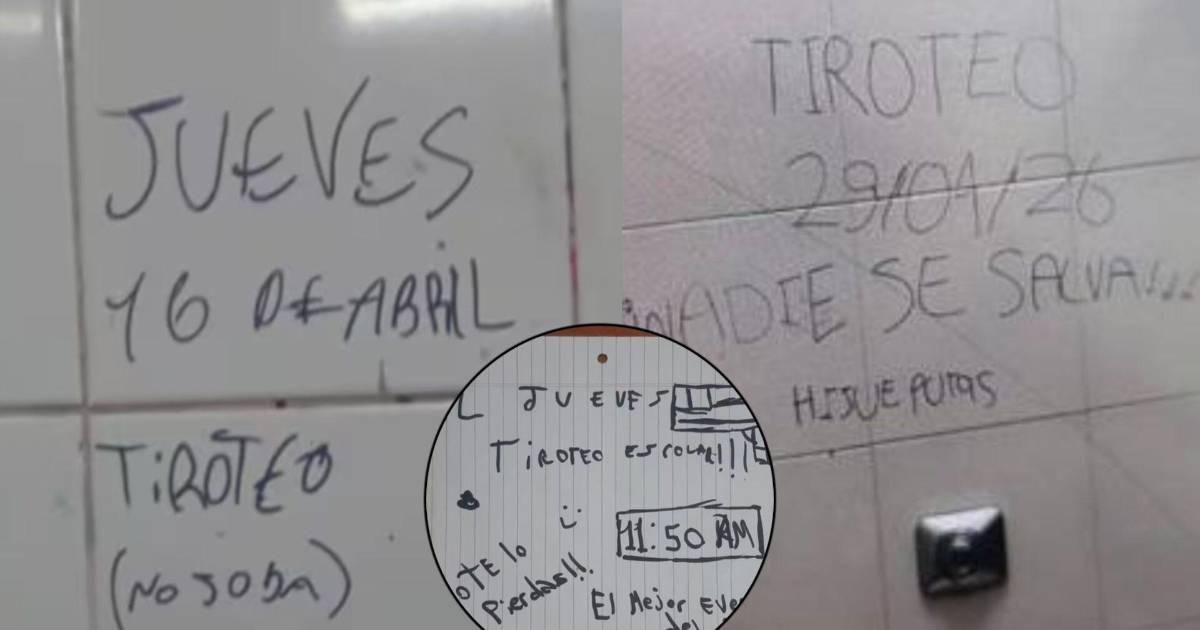 JUEVES
16 DE ABRIL
TiROTEO
(NO JODA)
TIROTEO
29/04/26
¡NADIE SE SALVA!!!
HIJUEPUTAS
JUEVES
TiROTEO ESCOLAR!!!
11:50 AM
OTE lo
pierdas!!!
El Mejor Eve